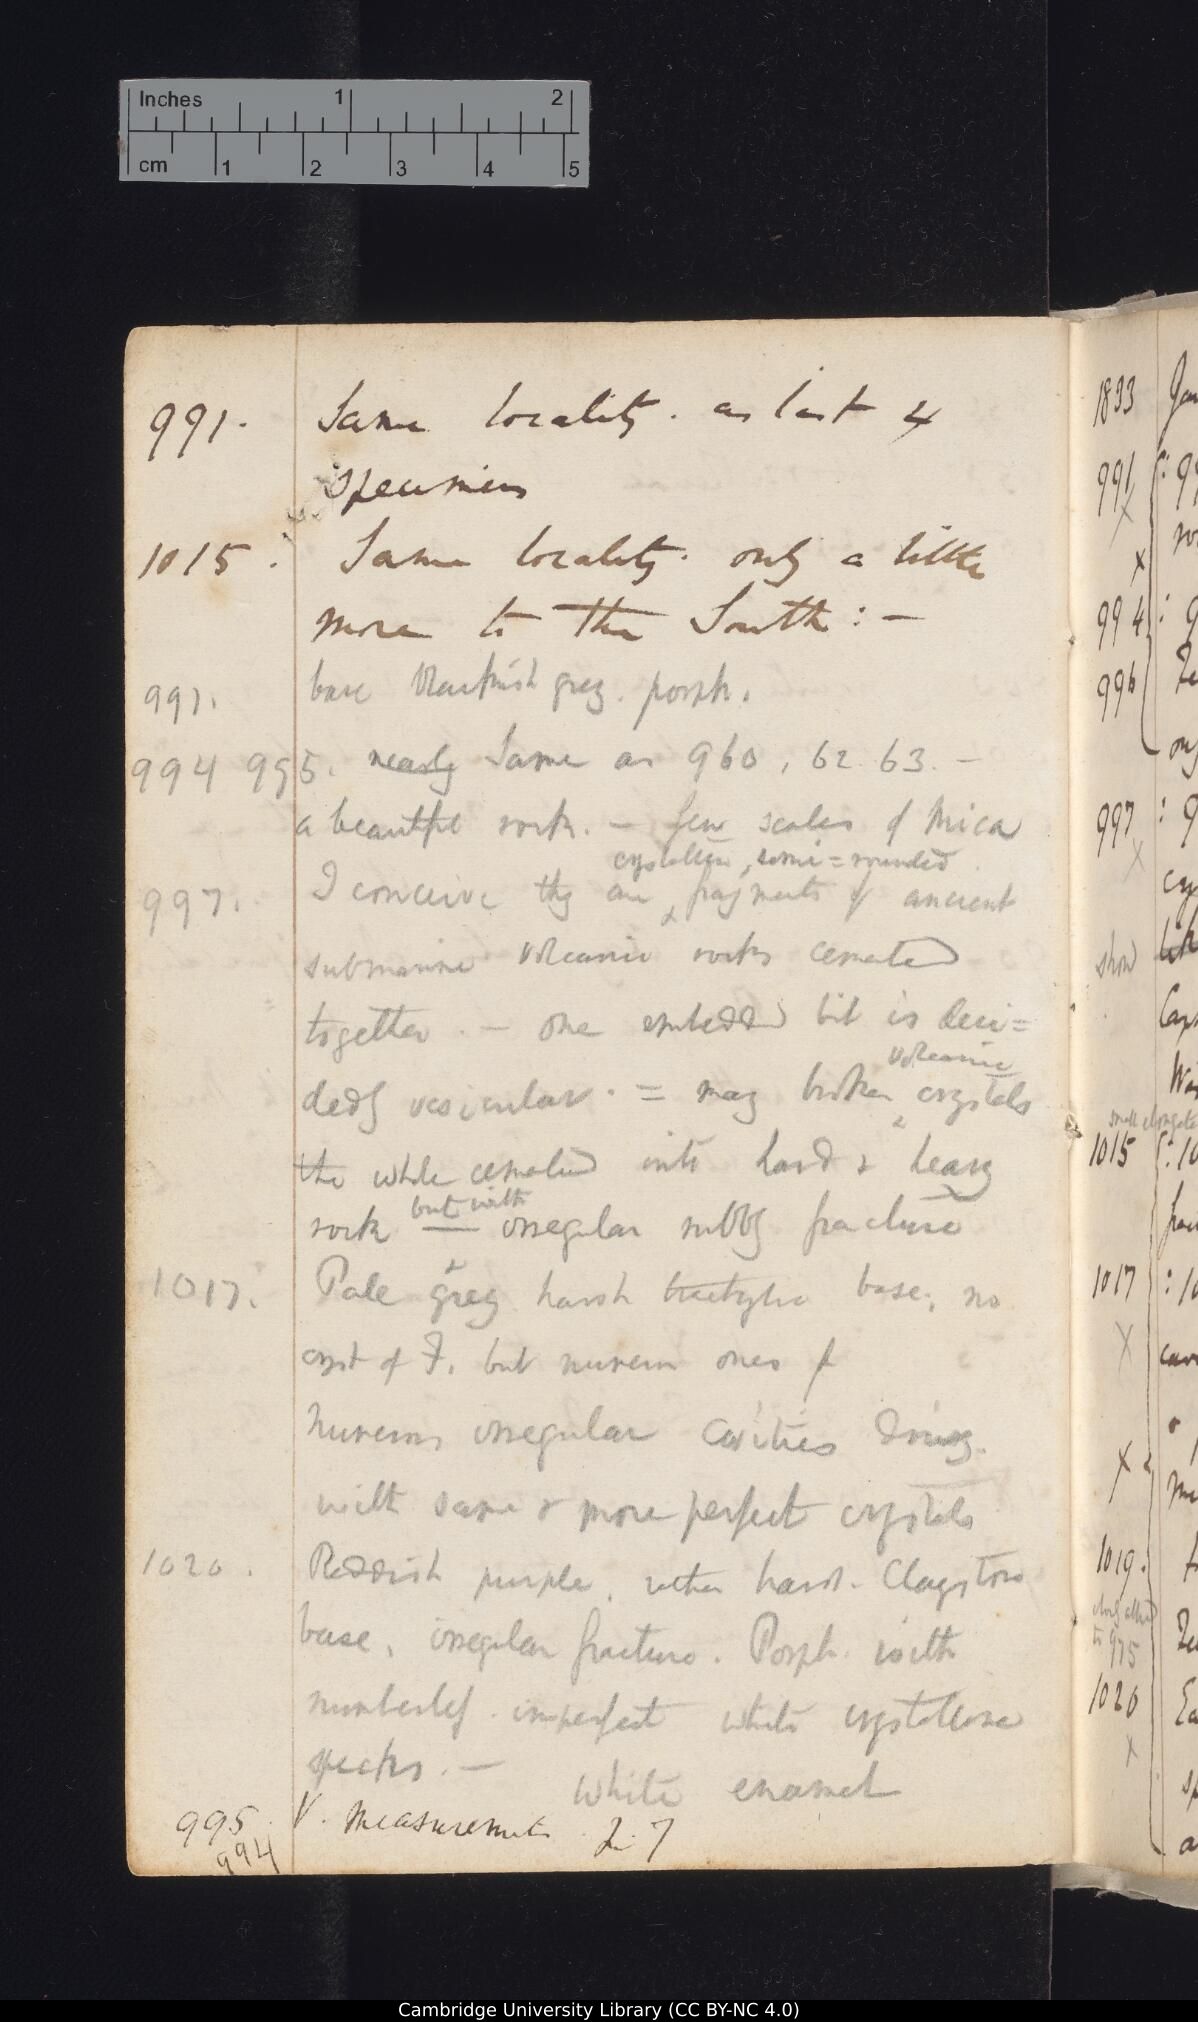 Inches 1 2
cm 1 2 3 4 5
991. Same locality. as last 4
specimens
1015. Same locality. only a little
more to the South: —
991. base blackish grey. porph.
994 995. nearly Same as 960, 62. 63. —
a beautiful rock. — few scales of Mica
crystalline, semi=rounded
997. I conceive they are fragments of ancient
submarine volcanic rocks cemented
together. — one embedded bit is deci=
volcanic
dedly vesicular. = many broken crystals
the whole cemented into hard & heavy
but with
rock — irregular rubbly fracture
1017. Pale grey harsh trachytic base, no
cryst of F. but numerous ones of
numerous irregular cavities
with same & more perfect crystals
1020. Reddish purple, rather hard. Claystone
base, irregular fracture. Porph. with
numberless imperfect white crystalline
specks. —
white enamel
995. V. measurements
994
1833
991
994
996
997
show
1015
1017
1019.
to 975
1020
Cambridge University Library (CC BY-NC 4.0)